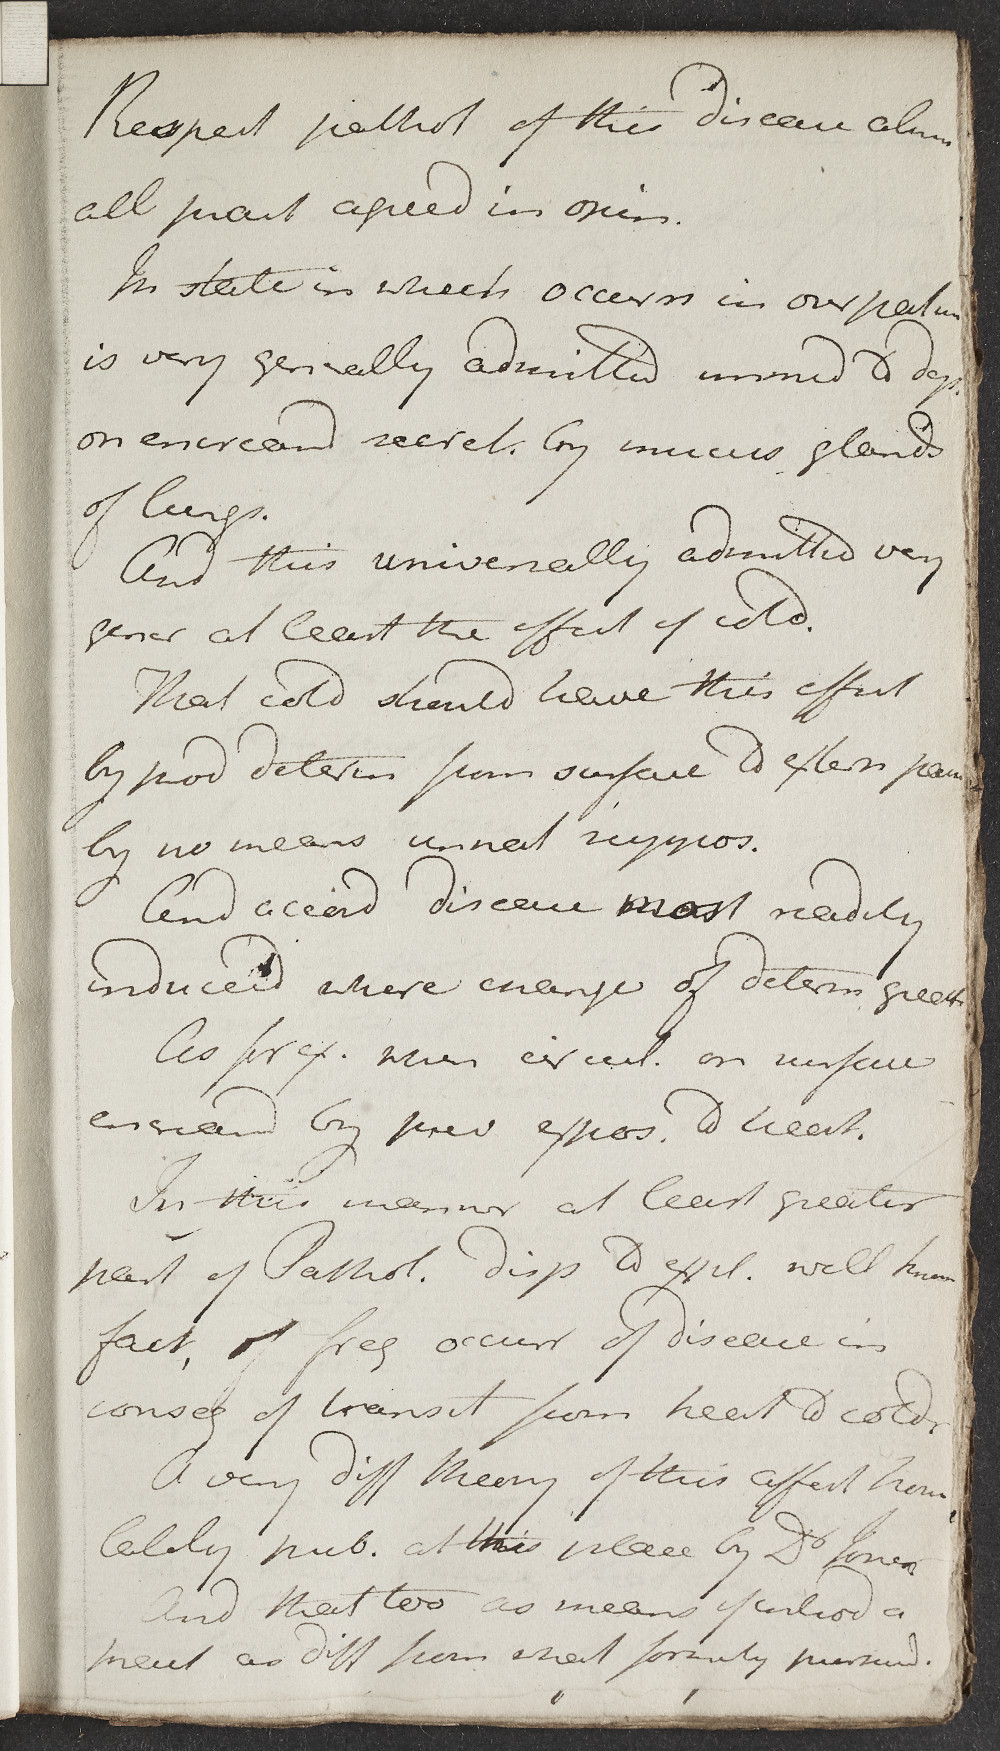 Respect pathol of this disease alm
all pract agreed in opin.
In state in which occurs in our patien
is very generally admitted immed to dep.
on encreasd secret. by mucus glands
of lungs.
And this universally admitted very
gener at least the effect of cold.
That cold should have this effect
by prod determ from surface to extern
by no means unnat suppos.
And accord disease most readily
induced where change of determ great
As for ex. when circul. on surface
encreasd by prev expos. to heat.
In this manner at least greater
part of Pathol. disp to expl. well known
fact, of freq occurr of disease in
conseq of transit from heat to cold
A very diff theory of this affect how
lately pub. at this place by Dr Jones
And that too as means of introd a
treat as diff from what formerly pursued.